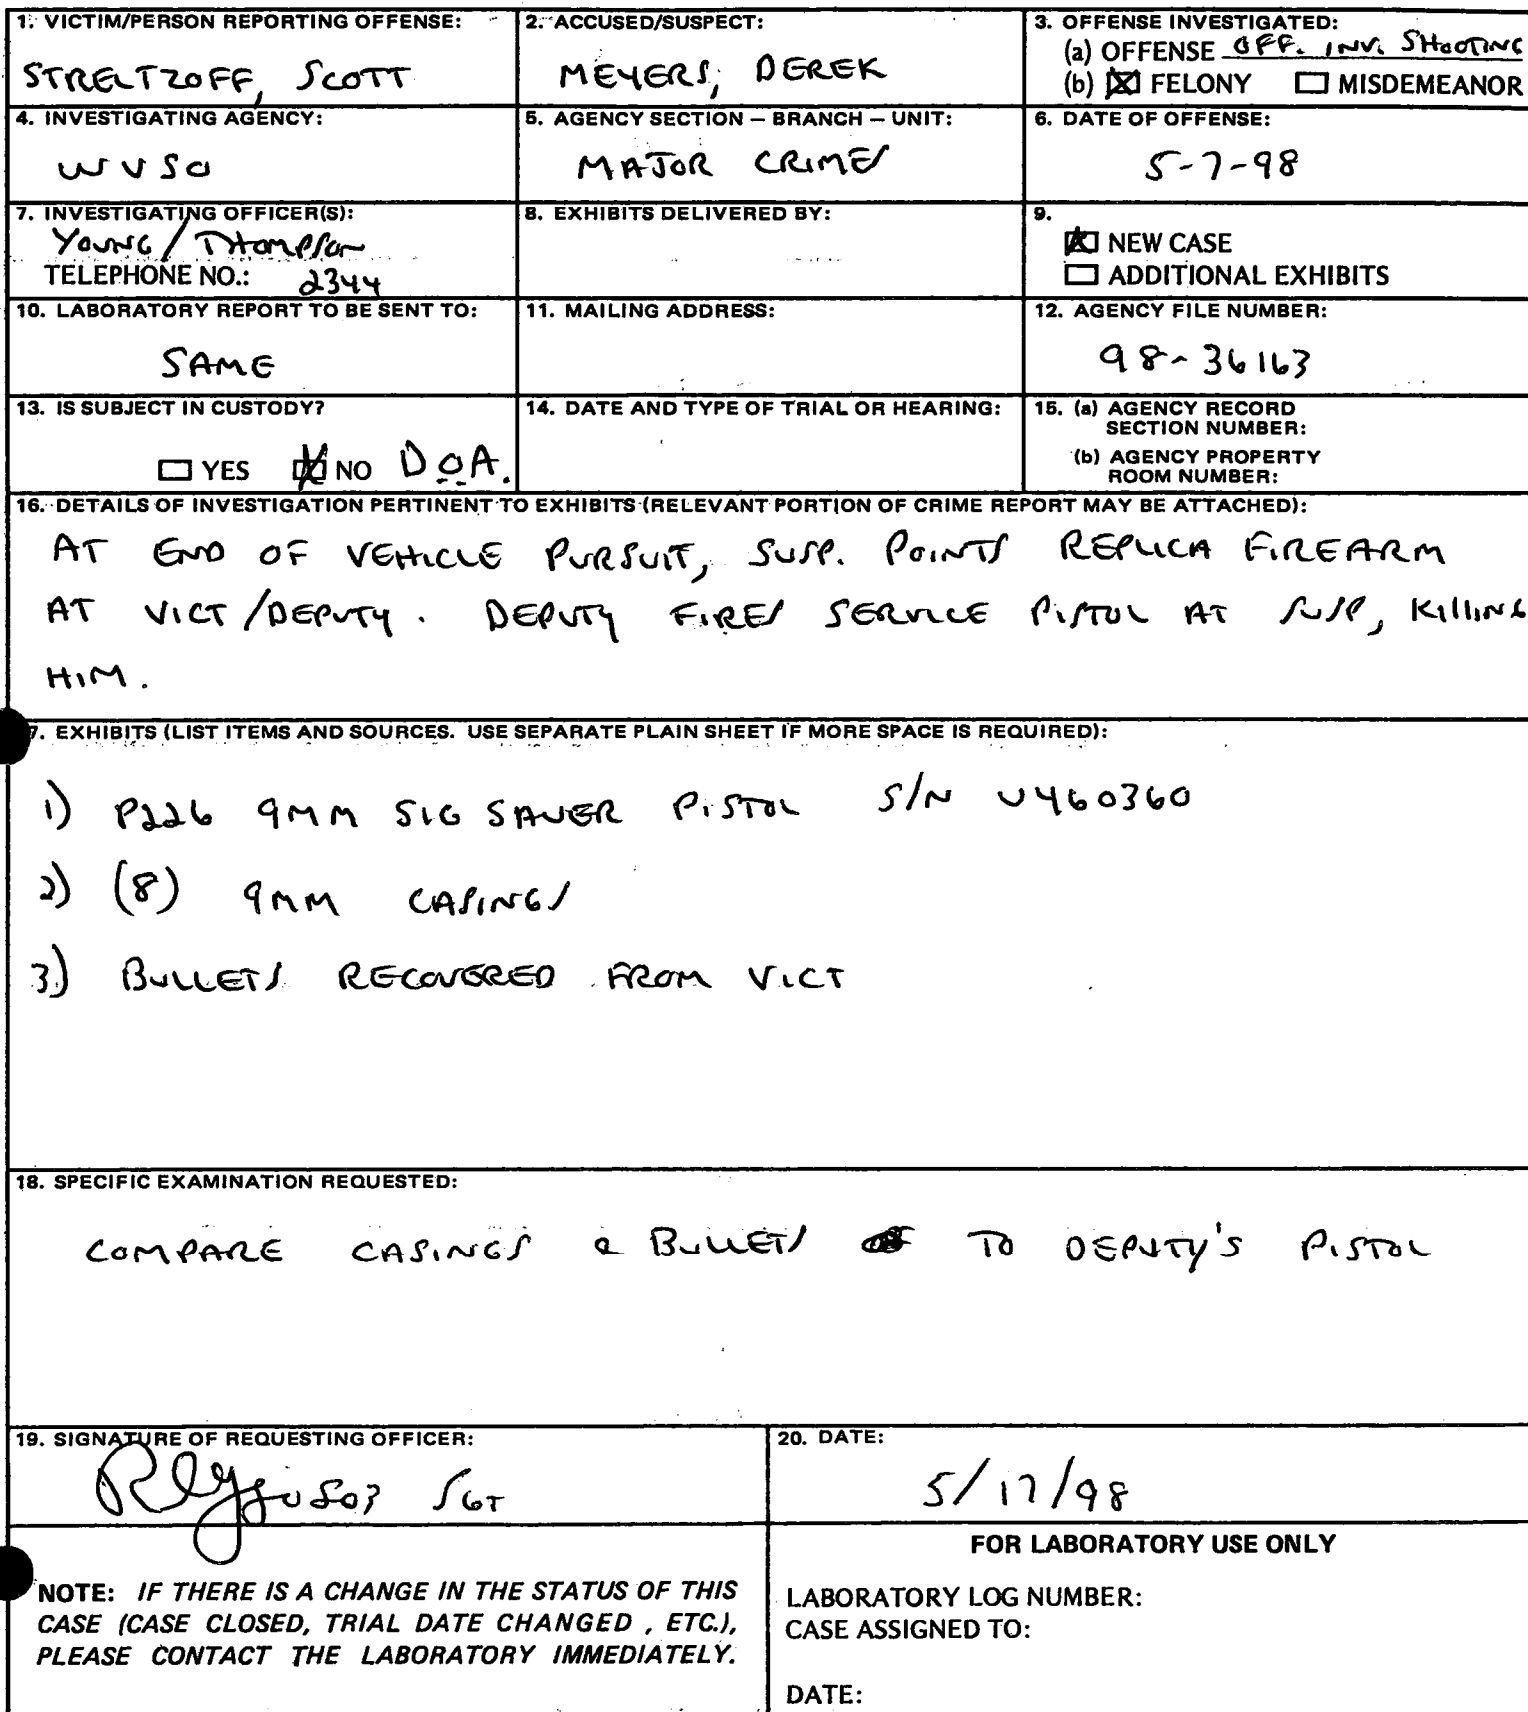 1. VICTIM/PERSON REPORTING OFFENSE:
STRELTZOFF, SCOTT
2. ACCUSED/SUSPECT:
MEYERS, DEREK
3. OFFENSE INVESTIGATED:
(a) OFFENSE OFF. INV. SHOOTING
(b) FELONY MISDEMEANOR
4. INVESTIGATING AGENCY:
WVSO
5. AGENCY SECTION – BRANCH – UNIT:
MAJOR CRIMES
6. DATE OF OFFENSE:
5-7-98
7. INVESTIGATING OFFICER(S):
YOUNG / THOMPSON
TELEPHONE NO.: 2344
8. EXHIBITS DELIVERED BY:
9.
NEW CASE
ADDITIONAL EXHIBITS
10. LABORATORY REPORT TO BE SENT TO:
SAME
11. MAILING ADDRESS:
12. AGENCY FILE NUMBER:
98-36163
13. IS SUBJECT IN CUSTODY?
YES NO D.O.A.
14. DATE AND TYPE OF TRIAL OR HEARING:
15. (a) AGENCY RECORD
SECTION NUMBER:
(b) AGENCY PROPERTY
ROOM NUMBER:
16. DETAILS OF INVESTIGATION PERTINENT TO EXHIBITS (RELEVANT PORTION OF CRIME REPORT MAY BE ATTACHED):
AT END OF VEHICLE PURSUIT, SUSP. POINTS REPLICA FIREARM
AT VICT/DEPUTY. DEPUTY FIRES SERVICE PISTOL AT SUSP, KILLING
HIM.
7. EXHIBITS (LIST ITEMS AND SOURCES. USE SEPARATE PLAIN SHEET IF MORE SPACE IS REQUIRED):
1) P226 9MM SIG SAUER PISTOL S/N U460360
2) (8) 9MM CASINGS
3) BULLETS RECOVERED FROM VICT
18. SPECIFIC EXAMINATION REQUESTED:
COMPARE CASINGS & BULLETS TO DEPUTY'S PISTOL
19. SIGNATURE OF REQUESTING OFFICER:
SGT
20. DATE:
5/17/98
NOTE: IF THERE IS A CHANGE IN THE STATUS OF THIS
CASE (CASE CLOSED, TRIAL DATE CHANGED , ETC.),
PLEASE CONTACT THE LABORATORY IMMEDIATELY.
FOR LABORATORY USE ONLY
LABORATORY LOG NUMBER:
CASE ASSIGNED TO:
DATE: